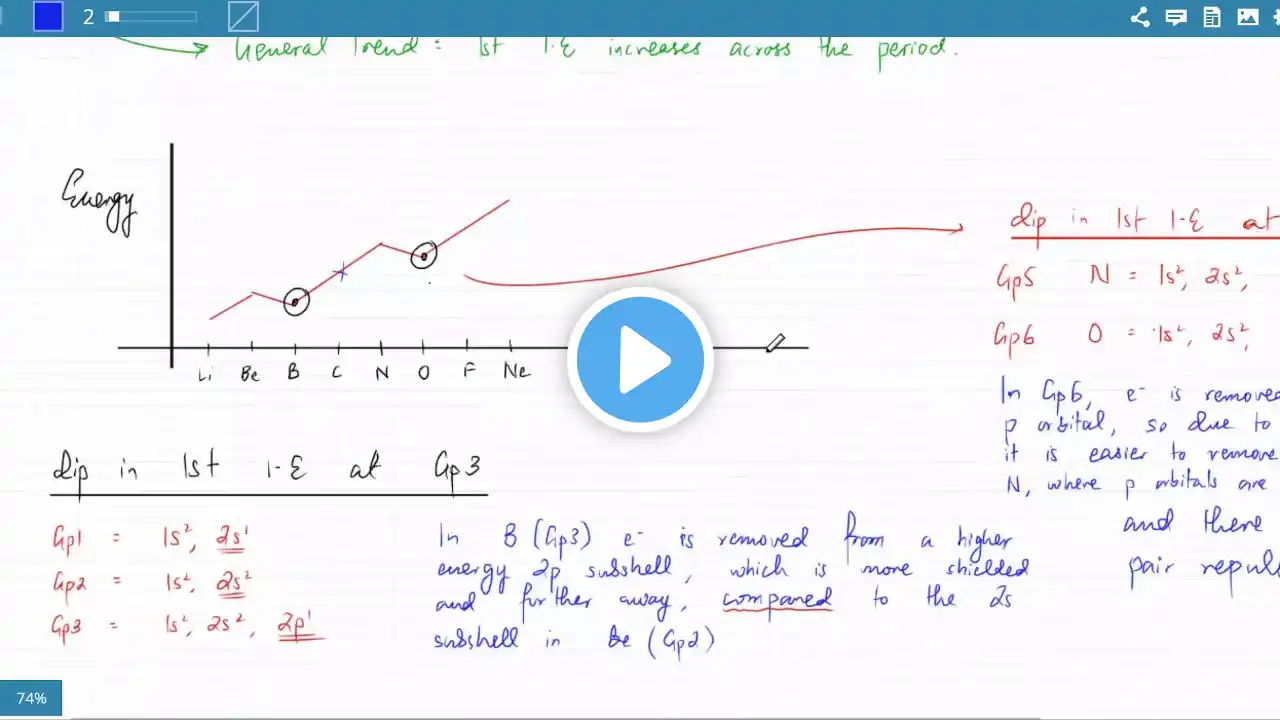 2
General Trend : 1st I.E increases across the period.
Energy
Li Be B C N O F Ne
dip in 1st I.E at Gp3
Gp1 = 1s², 2s¹
Gp2 = 1s², 2s²
Gp3 = 1s², 2s², 2p¹
In B (Gp3) e⁻ is removed from a higher
energy 2p subshell, which is more shielded
and further away, compared to the 2s
subshell in Be (Gp2)
dip in 1st I.E at
Gp5 N = 1s², 2s²,
Gp6 O = 1s², 2s²,
In Gp6, e⁻ is removed
p orbital, so due to
it is easier to remove
N, where p orbitals are
and there
pair repuls
74%